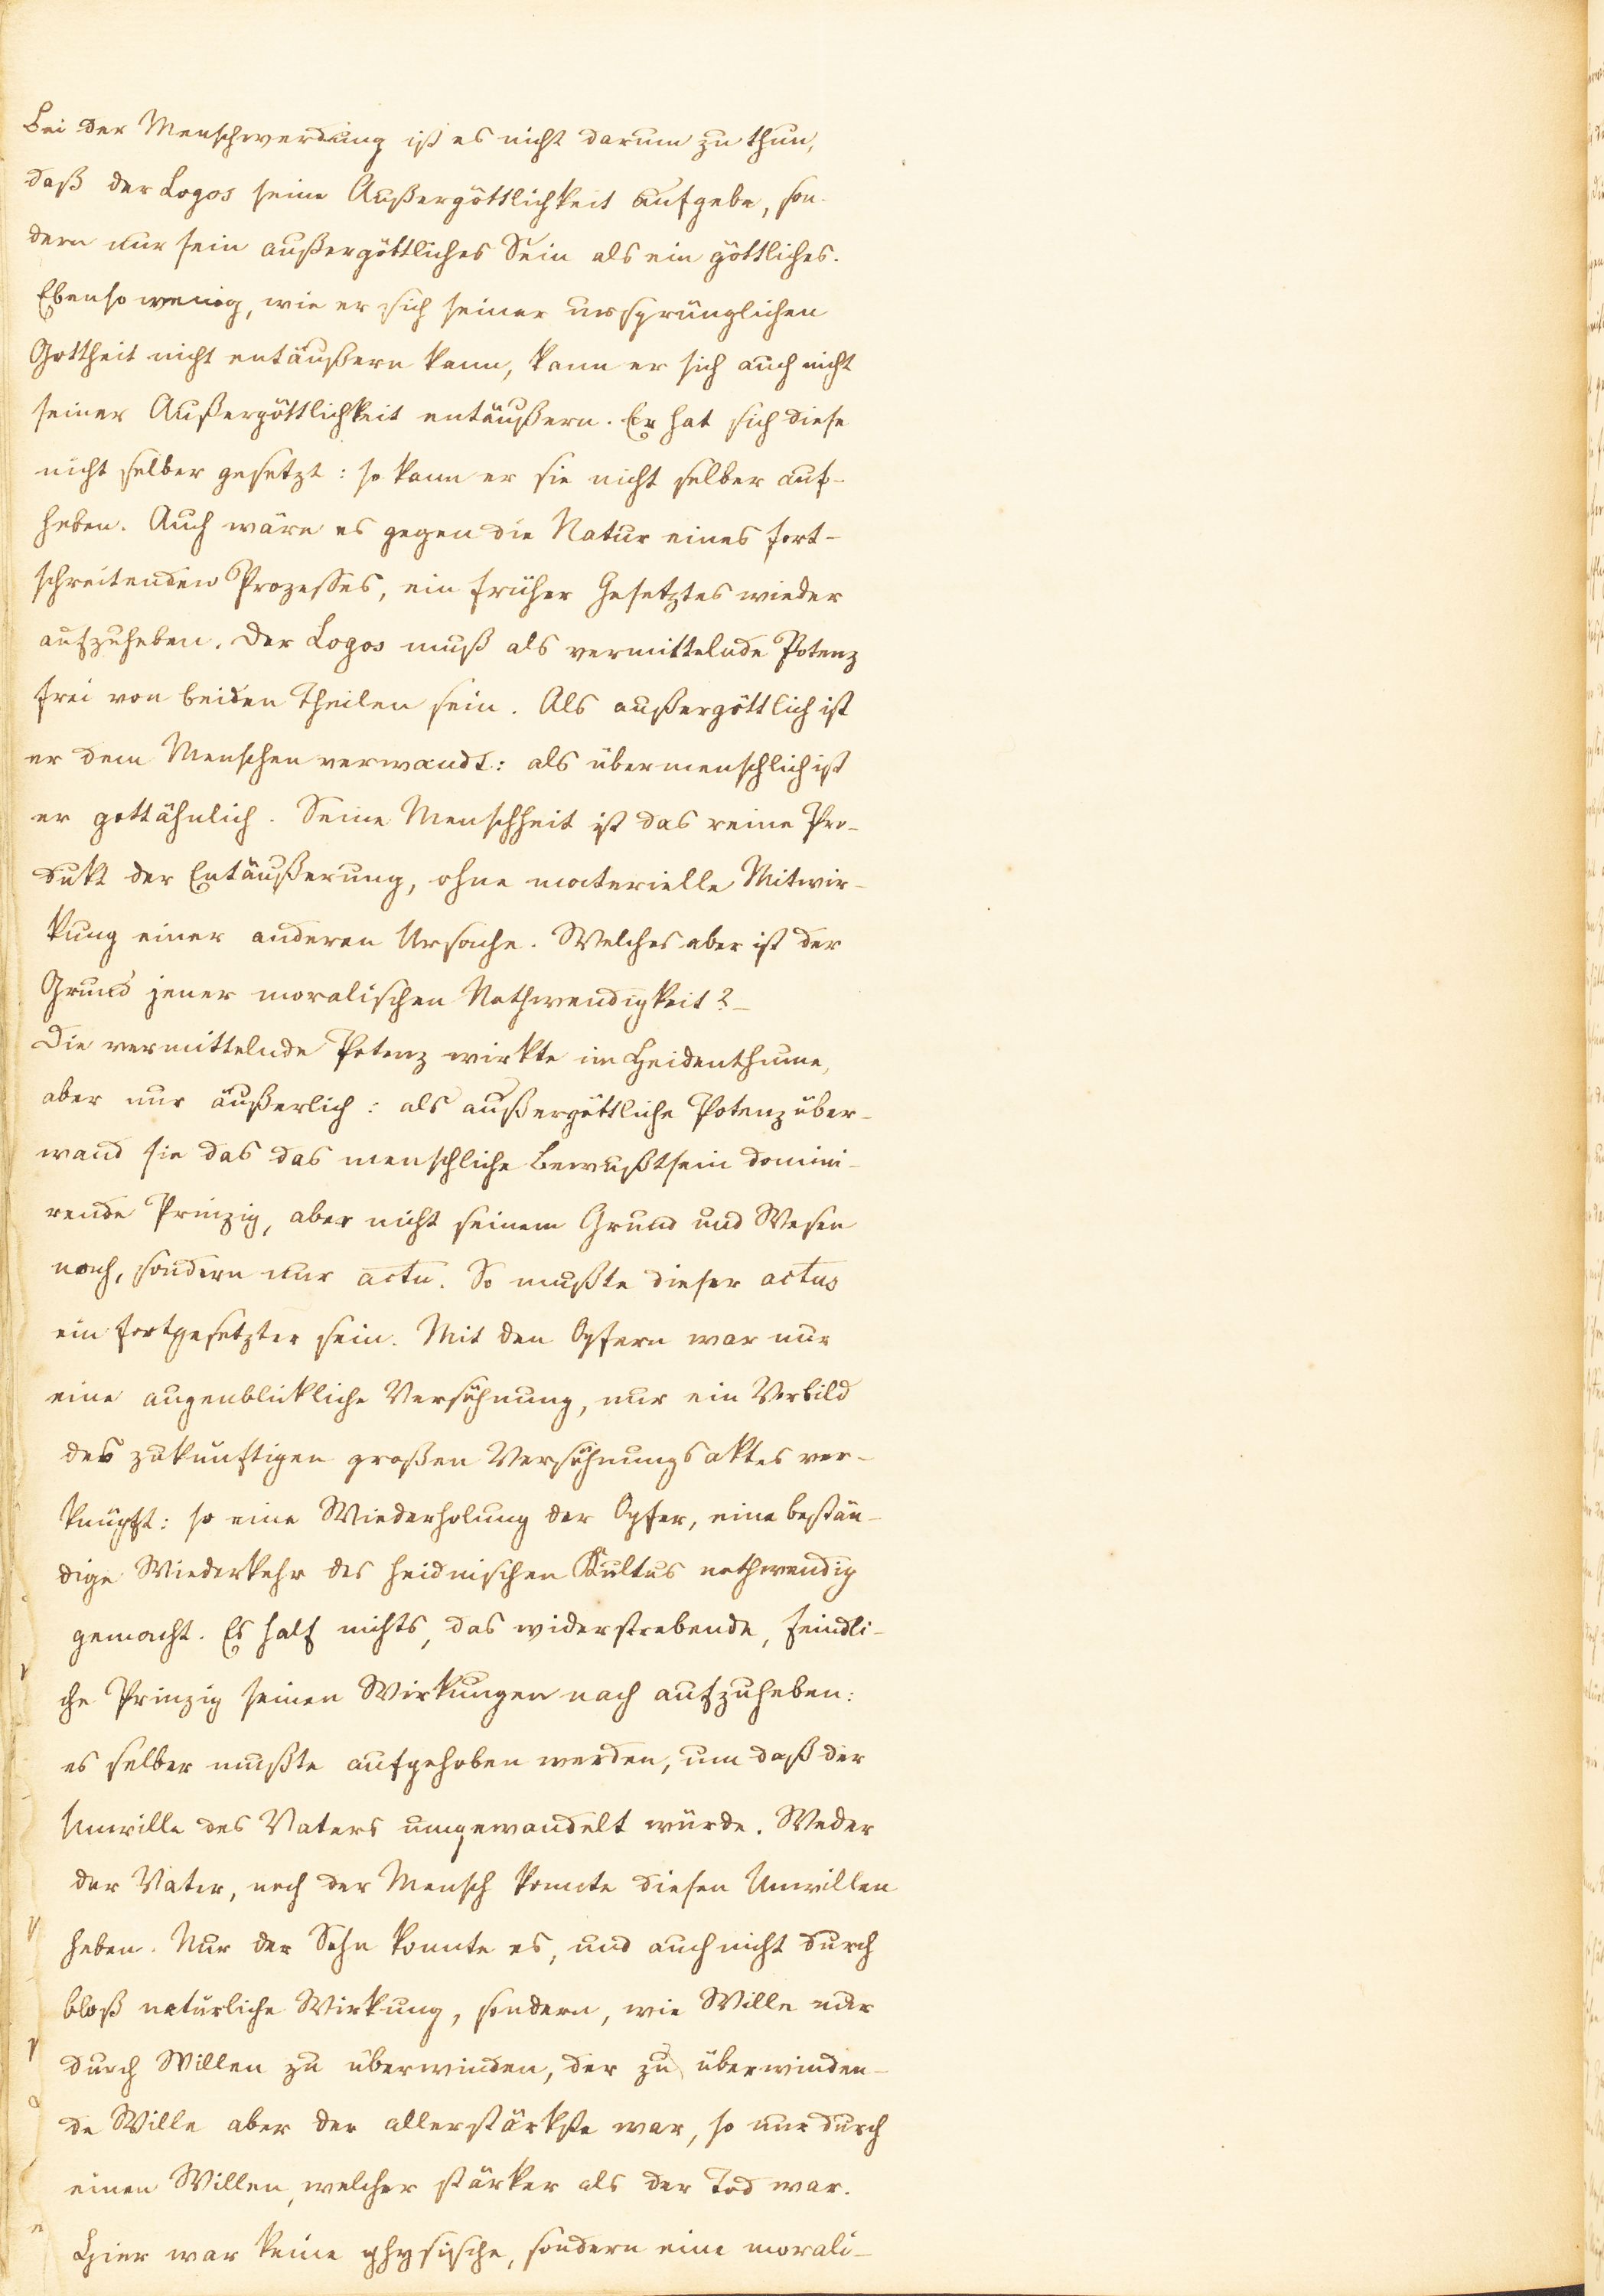 Bei der Menschwerdung ist es nicht darum zu thun,
daß der Logos seine Außergöttlichkeit aufgebe, son-
dern nur sein außergöttliches Sein als ein göttliches.
Ebenso wenig, wie er sich seiner ursprünglichen
Gottheit nicht entäußern kann, kann er sich auch nicht
seiner Außergöttlichkeit entäußern. Er hat sich diese
nicht selber gesetzt: so kann er sie nicht selber auf-
heben. Auch wäre es gegen die Natur eines fort-
schreitenden Prozesses, ein früher Gesetztes wieder
aufzuheben. Der Logos muß als vermittelnde Potenz
frei von beiden Theilen sein. Als außergöttlich ist
er dem Menschen verwandt: als übermenschlich ist
er gottähnlich. Seine Menschheit ist das reine Pro-
dukt der Entäußerung, ohne materielle Mitwir-
kung einer anderen Ursache. Welches aber ist der
Grund jener moralischen Nothwendigkeit?_
Die vermittelnde Potenz wirkte im Heidenthume,
aber nur äußerlich: als außergöttliche Potenz über-
wand sie das das menschliche Bewußtsein domini-
rende Prinzip, aber nicht seinem Grund und Wesen
nach, sondern nur actu. So mußte dieser actus
ein fortgesetzter sein. Mit den Opfern war nur
eine augenblickliche Versöhnung, nur ein Vorbild
des zukünftigen großen Versöhnungsaktes ver-
knüpft: so eine Wiederholung der Opfer, eine bestän-
dige Wiederkehr des heidnischen Kultus nothwendig
gemacht. Es half nichts, das widerstrebende, feindli-
che Prinzip seinen Wirkungen nach aufzuheben:
es selber mußte aufgehoben werden, um daß der
Unwille des Vaters umgewandelt würde. Weder
der Vater, noch der Mensch konnte diesen Unwillen
heben. Nur der Sohn konnte es, und auch nicht durch
bloß natürliche Wirkung, sondern, wie Wille nur
durch Willen zu überwinden, der zu überwinden-
de Wille aber der allerstärkste war, so nur durch
einen Willen, welcher stärker als der Tod war.
Hier war keine physische, sondern eine morali-